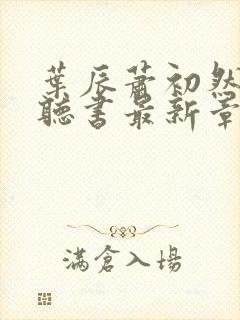 葉辰蕭初然
聽書最新章
滿倉入場